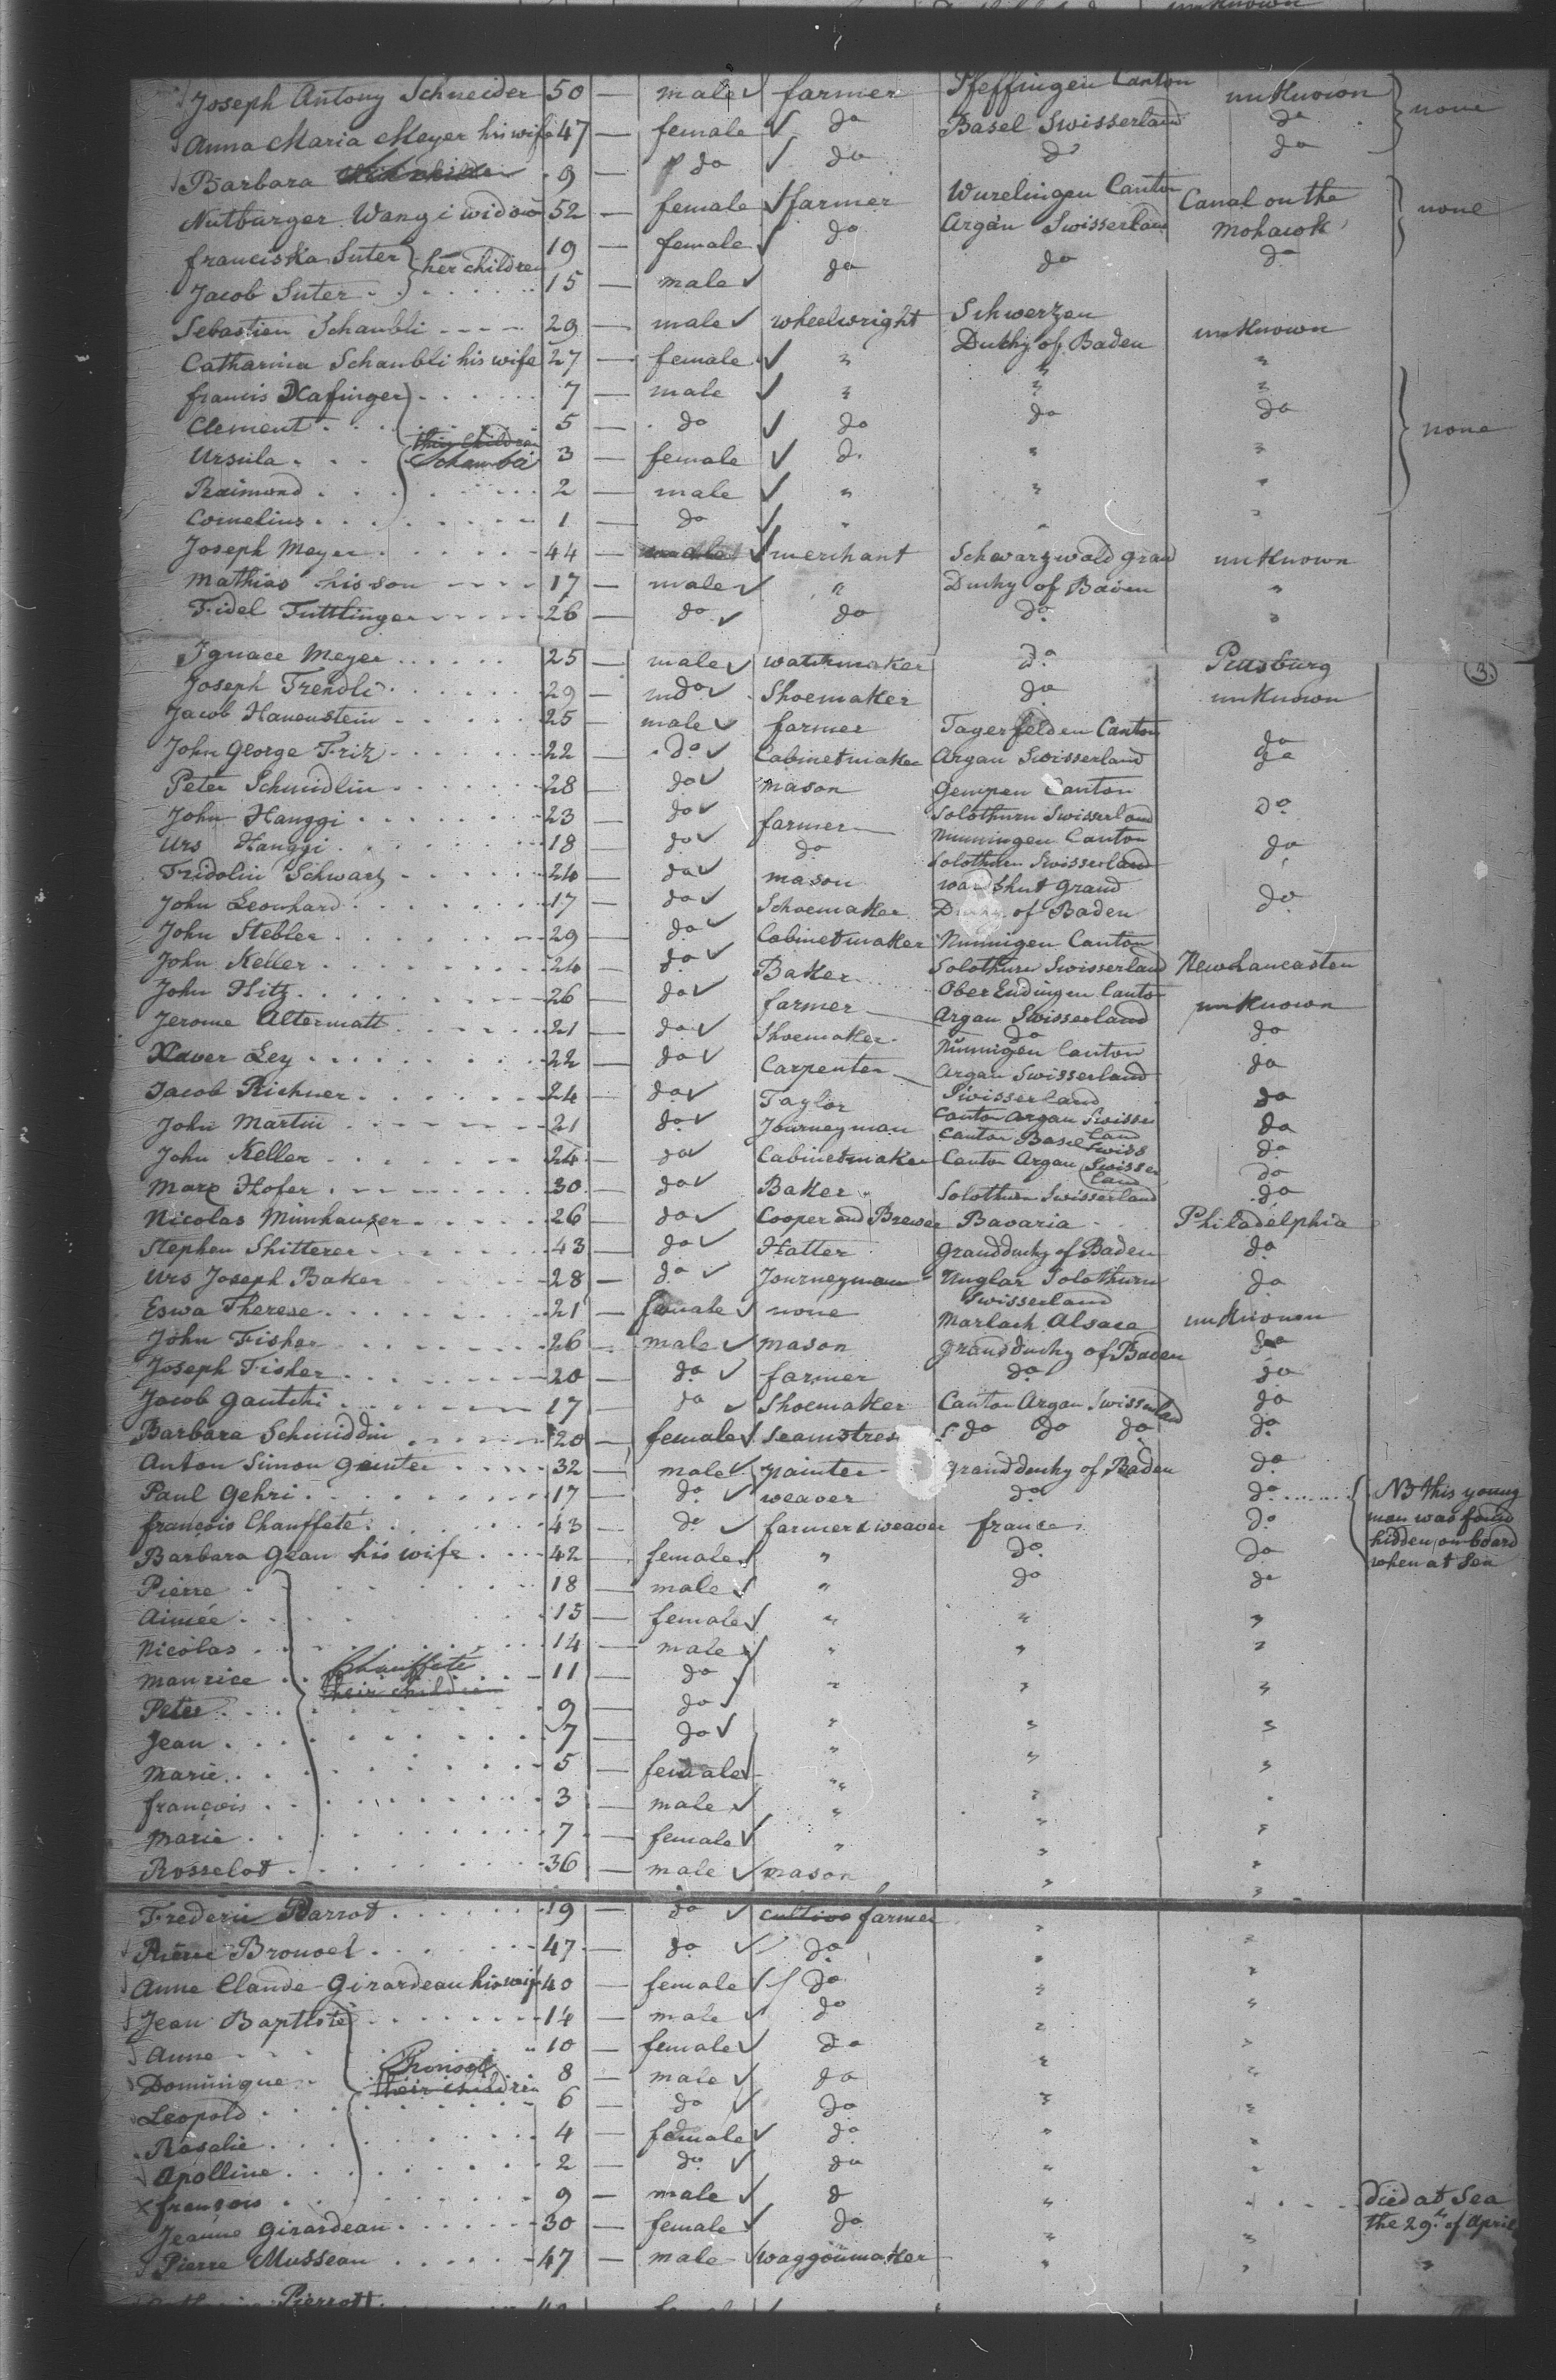 unknown
Joseph Antony Schneider 50 — male farmer Pfeffingen Canton unknown none
Anna Maria Meyer his wife 47 — female do Basel Swisserland do
Barbara 9 — do do do do
Nutburger Wangi widow 52 — female farmer Wurelingen Canton Canal on the none
franciska Suter her children 19 — female do Argau Swisserland Mohawk
Jacob Suter 15 — male do do do
Sebastien Schaubli 29 — male wheelwright Schwerzen unknown
Catharina Schaubli his wife 27 — female " Duthy of Baden "
francis Xafinger 7 — male " " "
Clement 5 — do do do do none
Ursula their children Schaubli 3 — female d. " "
Raimond 2 — male " " "
Cornelius 1 — do " " "
Joseph Meyer 44 — male merchant Schwarzwald grand unknown
Mathias his son 17 — male " Duchy of Baden "
Fidel Tuttlinger 26 — do do do "
Ignace Meyer 25 — male watchmaker do Pittsburg 3.
Joseph Trendli 29 — do Shoemaker do unknown
Jacob Hauenstein 25 — male farmer Tagerfelden Canton
John George Friz 22 — do Cabinetmaker Argau Swisserland do do
Peter Schmidlin 28 do mason Gempen Canton
John Hanggi 23 do farmer Solothurn Swisserland do
Urs Hanggi 18 do do Nunningen Canton
Fridolin Schwarz 24 do mason Solothurn Swisserland do
John Leonhard 17 do Schoemaker Waldshut grand Duchy of Baden do
John Stebler 29 do Cabinetmaker Nunnigen Canton
John Keller 24 — do Baker Solothurn Swisserland New Lancaster
John Hitz 26 — do farmer Ober Endingen Canton Argau Swisserland unknown
Jerome Altermatt 21 — do Shoemaker do do
Xaver Ley 22 — do Carpenter Nunnigen Canton Argau Swisserland do
Jacob Richner 24 — do Taylor Swisserland do
John Martin 21 — do Journeyman Canton Argau Swisserland do
John Keller 24 — do Cabinetmaker Canton Basel Swiss do
Canton Argau Swisserland do
Marx Hofer 30 — do Baker Solothurn Swisserland do
Nicolas Munhauser 26 — do Cooper and Brewer Bavaria Philadelphia
Stephen Shitterer 43 — do Hatter Grandduchy of Baden do
Urs Joseph Baker 28 — do Journeyman Unglar Solothurn Swisserland do
Eswa Therese 21 — female none Marlach Alsace unknonen
John Fisher 26 — male mason Grandduchy of Baden do
Joseph Fisher 20 — do farmer do do
Jacob Gautchi 17 do Shoemaker Canton Argau Swisserland do
Barbara Schmiddin 20 — female Seamstress do do do do
Anton Simon Geinter 32 — male painter Grandduchy of Baden do
Paul Gehri 17 — do weaver do do NB this young
françois Chauffeté 43 — do farmer & weaver france do man was found
Barbara Gran his wife 42 — female " do do hidden on board when at Sea
Pierre 18 — male " do do
Aimée 15 — female " " "
Nicolas 14 — male " " "
Maurice Chauffeté their children 11 — do " " "
Peter 9 — do " " "
Jean 7 — do " " "
Marie 5 — female " " "
françois 3 — male " " "
Marie 7 — female " " "
Rosselot 36 — male mason " "
Frederic Parrot 19 — do cultiva farmer " "
Pierre Bronoel 47 — do do " "
Anne Claude Girardeau his wife 40 — female do " "
Jean Baptiste 14 — male do " "
Anne 10 — female do " "
Dominique Bronoel their children 8 — male do " "
Leopold 6 — do do " "
Rosalie 4 — female do " "
Apolline 2 — do do " "
x françois 9 — male d " died at Sea
Jeanne Girardeau 30 — female do " " the 29th of April
Pierre Musseau 47 — male waggonmaker " " "
Pierrott